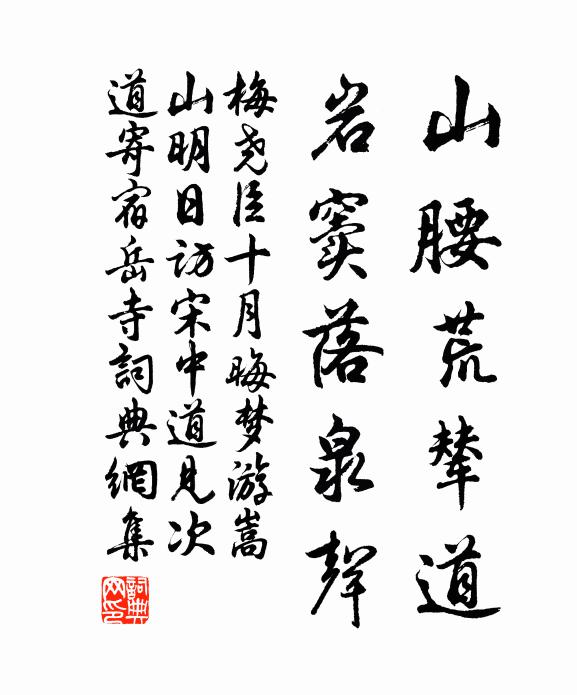 山腰荒輦道
岩窦落泉聲
梅尧臣十月晦梦游嵩
山明日访宋中道见次
道寄宿岳寺詞典網集
詞典网印